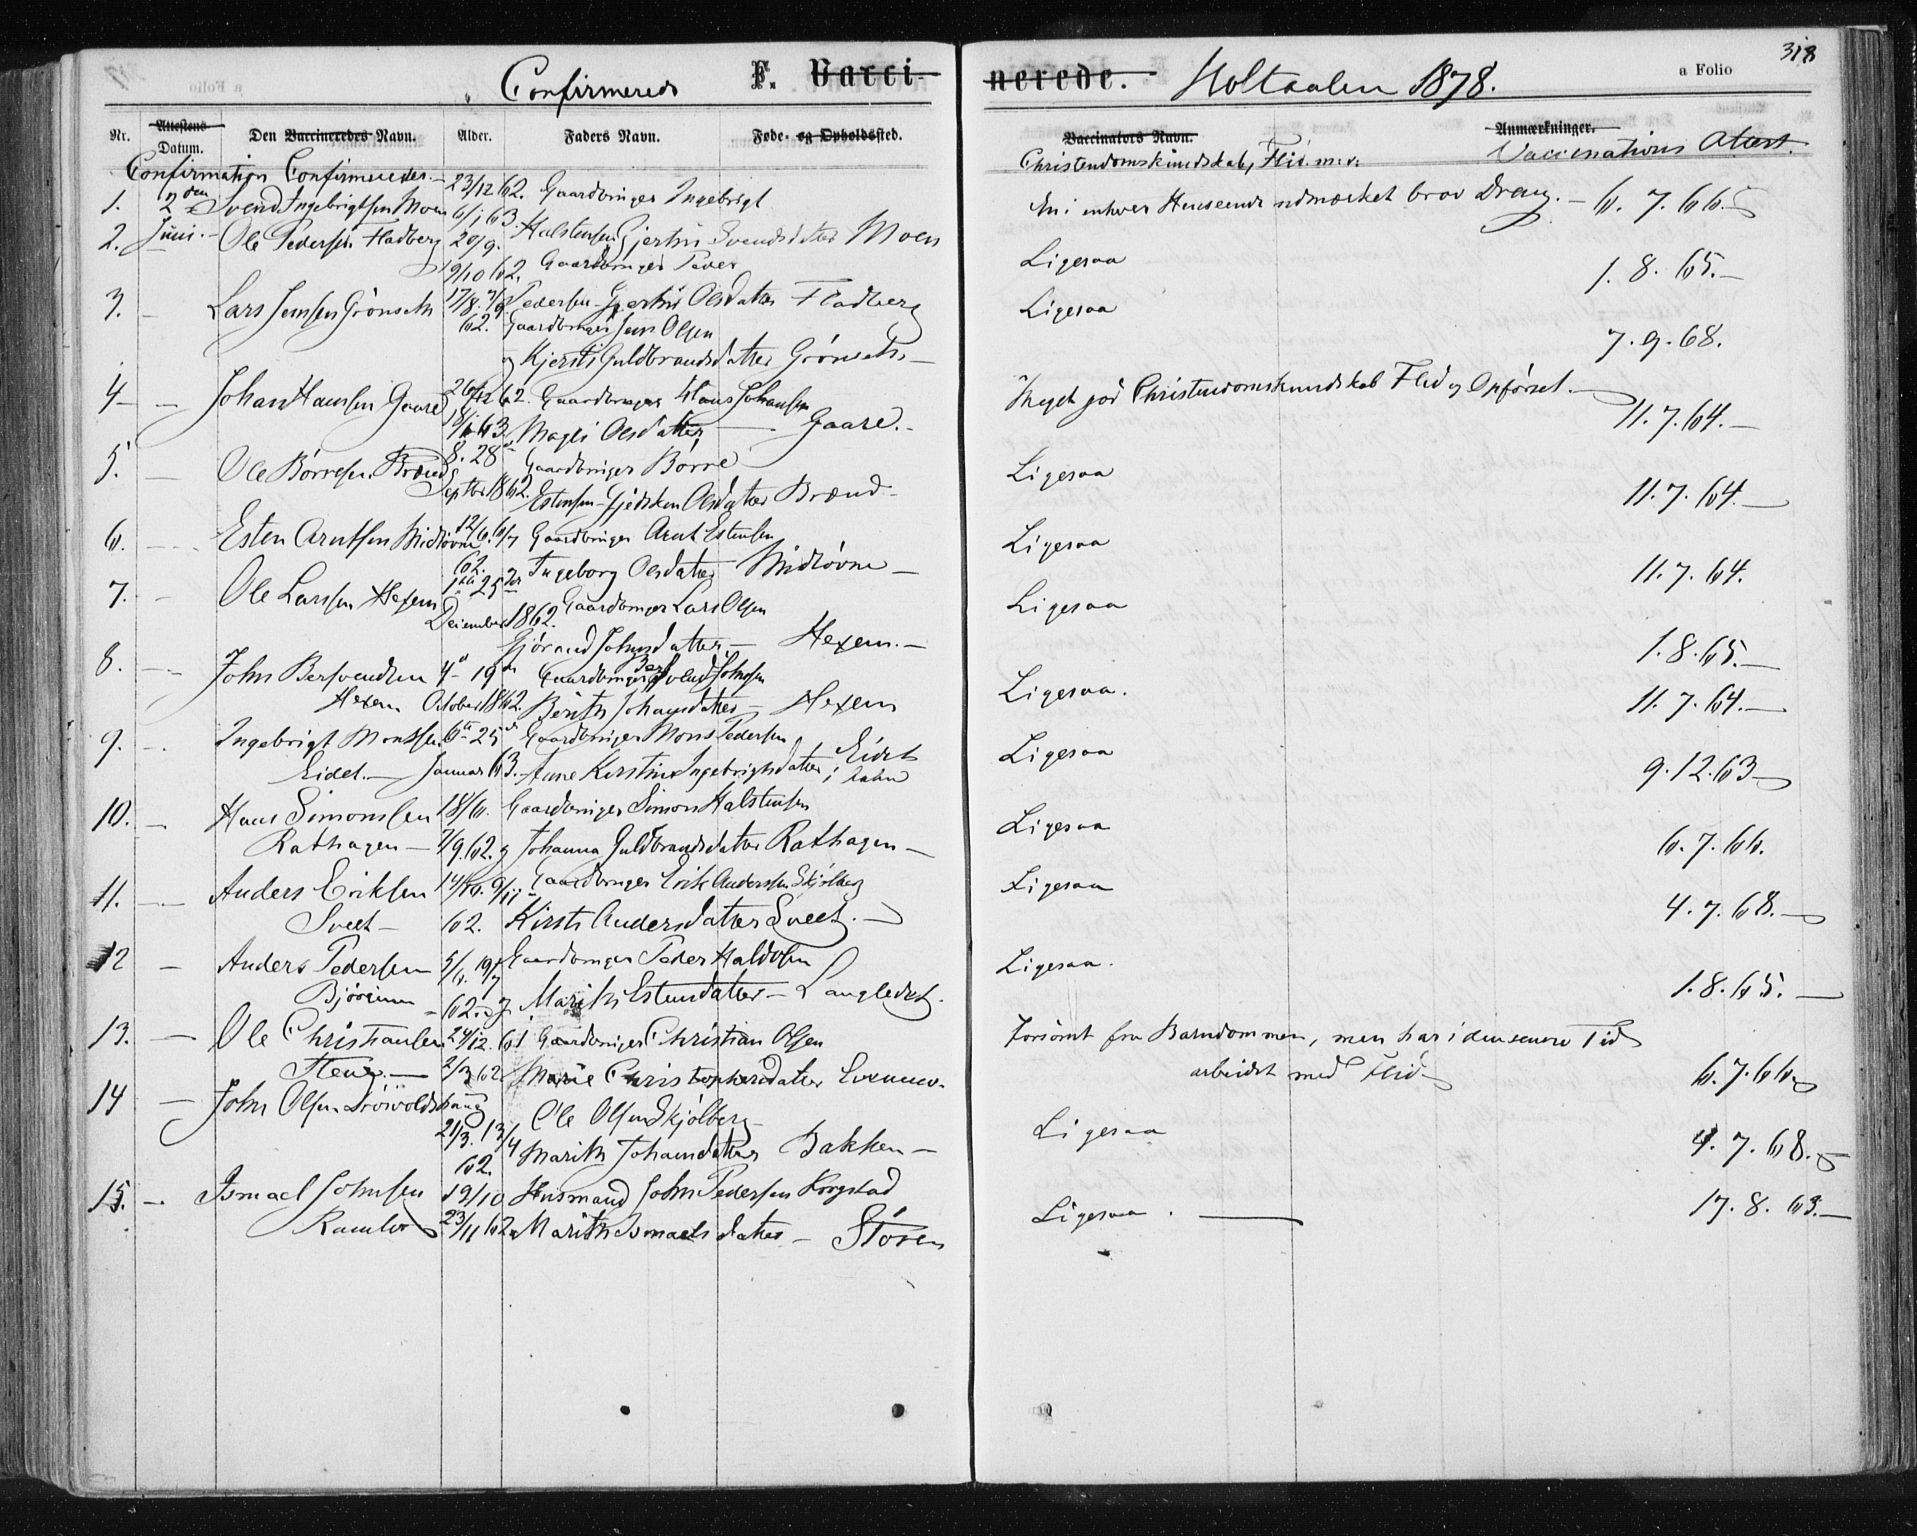 318
Confirmerede F. Vacci- nerede. Holtaalen 1878. a Folio
Nr. Attestens Datum. Den Vaccineredes Navn. Alder. Faders Navn. Føde- og Opholdssted. Vaccinators Navn. Anmærkninger.
Christendomskundskab, Flid m. v. Vaccinations Attest.
Confirmation Confirmerede
1. 2den Svend Ingebrigtsen Moen 23/12 62. Gaardbruger Ingebrigt En i enhver Henseende udmærket brav Dreng. — 6. 7. 66.
6/1 63. Halstensen Gjertru Svendsdatter Moen
2. Juni. Ole Pedersen Fladberg 20/9. Gaardbruger Peder Ligesaa 1. 8. 65. —
19/10 62. Pedersen Gjertru Olsdatter Fladberg
3. Lars Jensen Grönseth 17/8. 7/9 62. Gaardbruger Jens Olsen Ligesaa 7. 9. 68.
og Kjersti Guldbrandsdatter Grönseth —
4 Johan Hansen Gaare 26/12 62. Gaardbruger Hans Johansen Meget god Christendomskundskab Flid og Opförsel. 11. 7. 64. —
63. Magli Olsdatter — Gaare. —
5. Ole Börresen Brænd 8. 28 Gaardbruger Börre Ligesaa 11. 7. 64. —
Septbr 1862. Estensen Gjedsken Olsdatter Brænd —
6. Esten Arntsen Midtövne 12/6. 6/7 Gaardbruger Arnt Estensen Ligesaa 11. 7. 64.
62. Ingeborg Olsdatter Midtövne —
7. Ole Larsen Hexem 1ste 25 Gaardbruger Lars Olsen Ligesaa 1. 8. 65. —
December 1862. Gjörand Johnsdatter — Hexem. —
8. John Bersvendsen 4 - 19 Gaardbruger Bersvend Johnsen Ligesaa. 11. 7. 64. —
Hexem October 1862. Berith Johansdatter — Hexem
9. Ingebrigt Monssen 6te 25 Gaardbruger Mons Pedersen Ligesaa 9. 12. 63 —
Eidet. — Januar 63. Anne Kirstine Ingebrigtsdatter Eidet
10. Hans Simonsen 18/6. Gaardbruger Simon Halstensen Ligesaa 6. 7. 66.
Rathagen — 7/9. 62. og Johanna Guldbrandsdatter Rathagen —
11. Anders Eriksen 14/10. 9/11 Gaardbruger Erik Andersen Skjölberg Ligesaa 4. 7. 68. —
Sveet — 62. Kirsti Andersdatter Sveet. —
12 Anders Pedersen 5/6. 19/7 Gaardbruger Peder Haldosen Ligesaa. 1. 8. 65. —
62. og Marith Estensdatter — Langledet.
13. Ole Christiansen 24/12. 61 Gaardbruger Christian Olsen Forsömt fra Barndommen, men har i den senere Tid
2/3 62 Marie Christophersdatter arbeidet med Flid 6. 7. 66.
14 John Olsen Ole Olsen Skjölberg
21/3. 13/4 62. Marith Johansdatter Bakken — Ligesaa 4. 7. 68.
15. Ismael Johnsen 19/10 Husmand John Pedersen Kregstad Ligesaa. — 17. 8. 63. —
Ramlo 23/11 62 Marith Ismaelsdatter — Stören